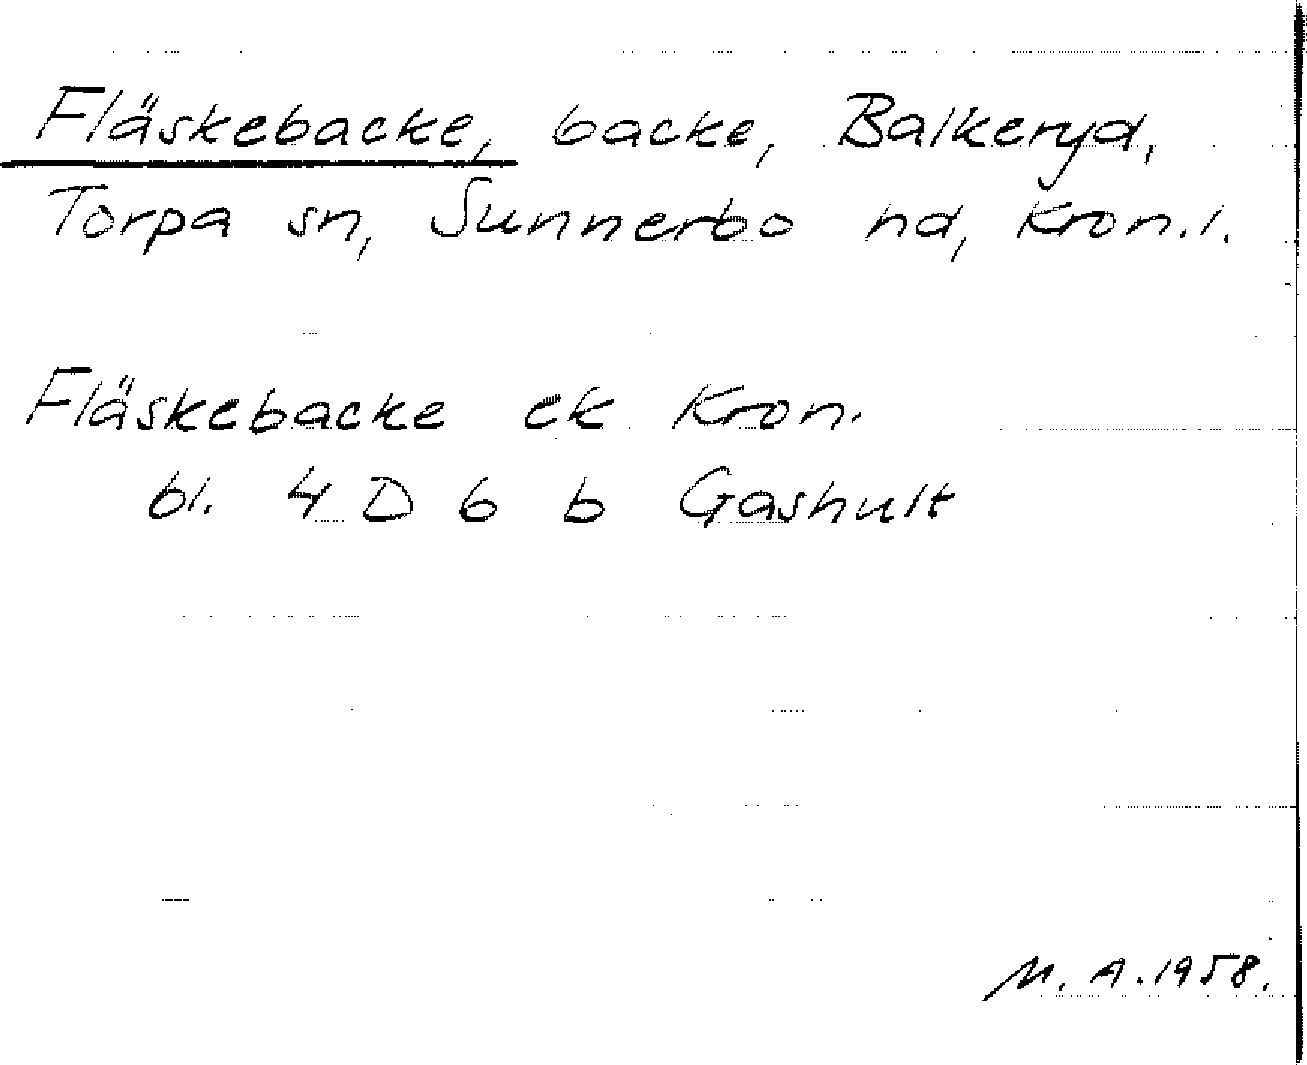 Fläskebacke, backe, Balkeryd,
Torpa sn, Sunnerbo hd, Kron.l.
Fläskebacke ek Kron.
bl. 4 D 6 b Gashult
M. A. 1958.